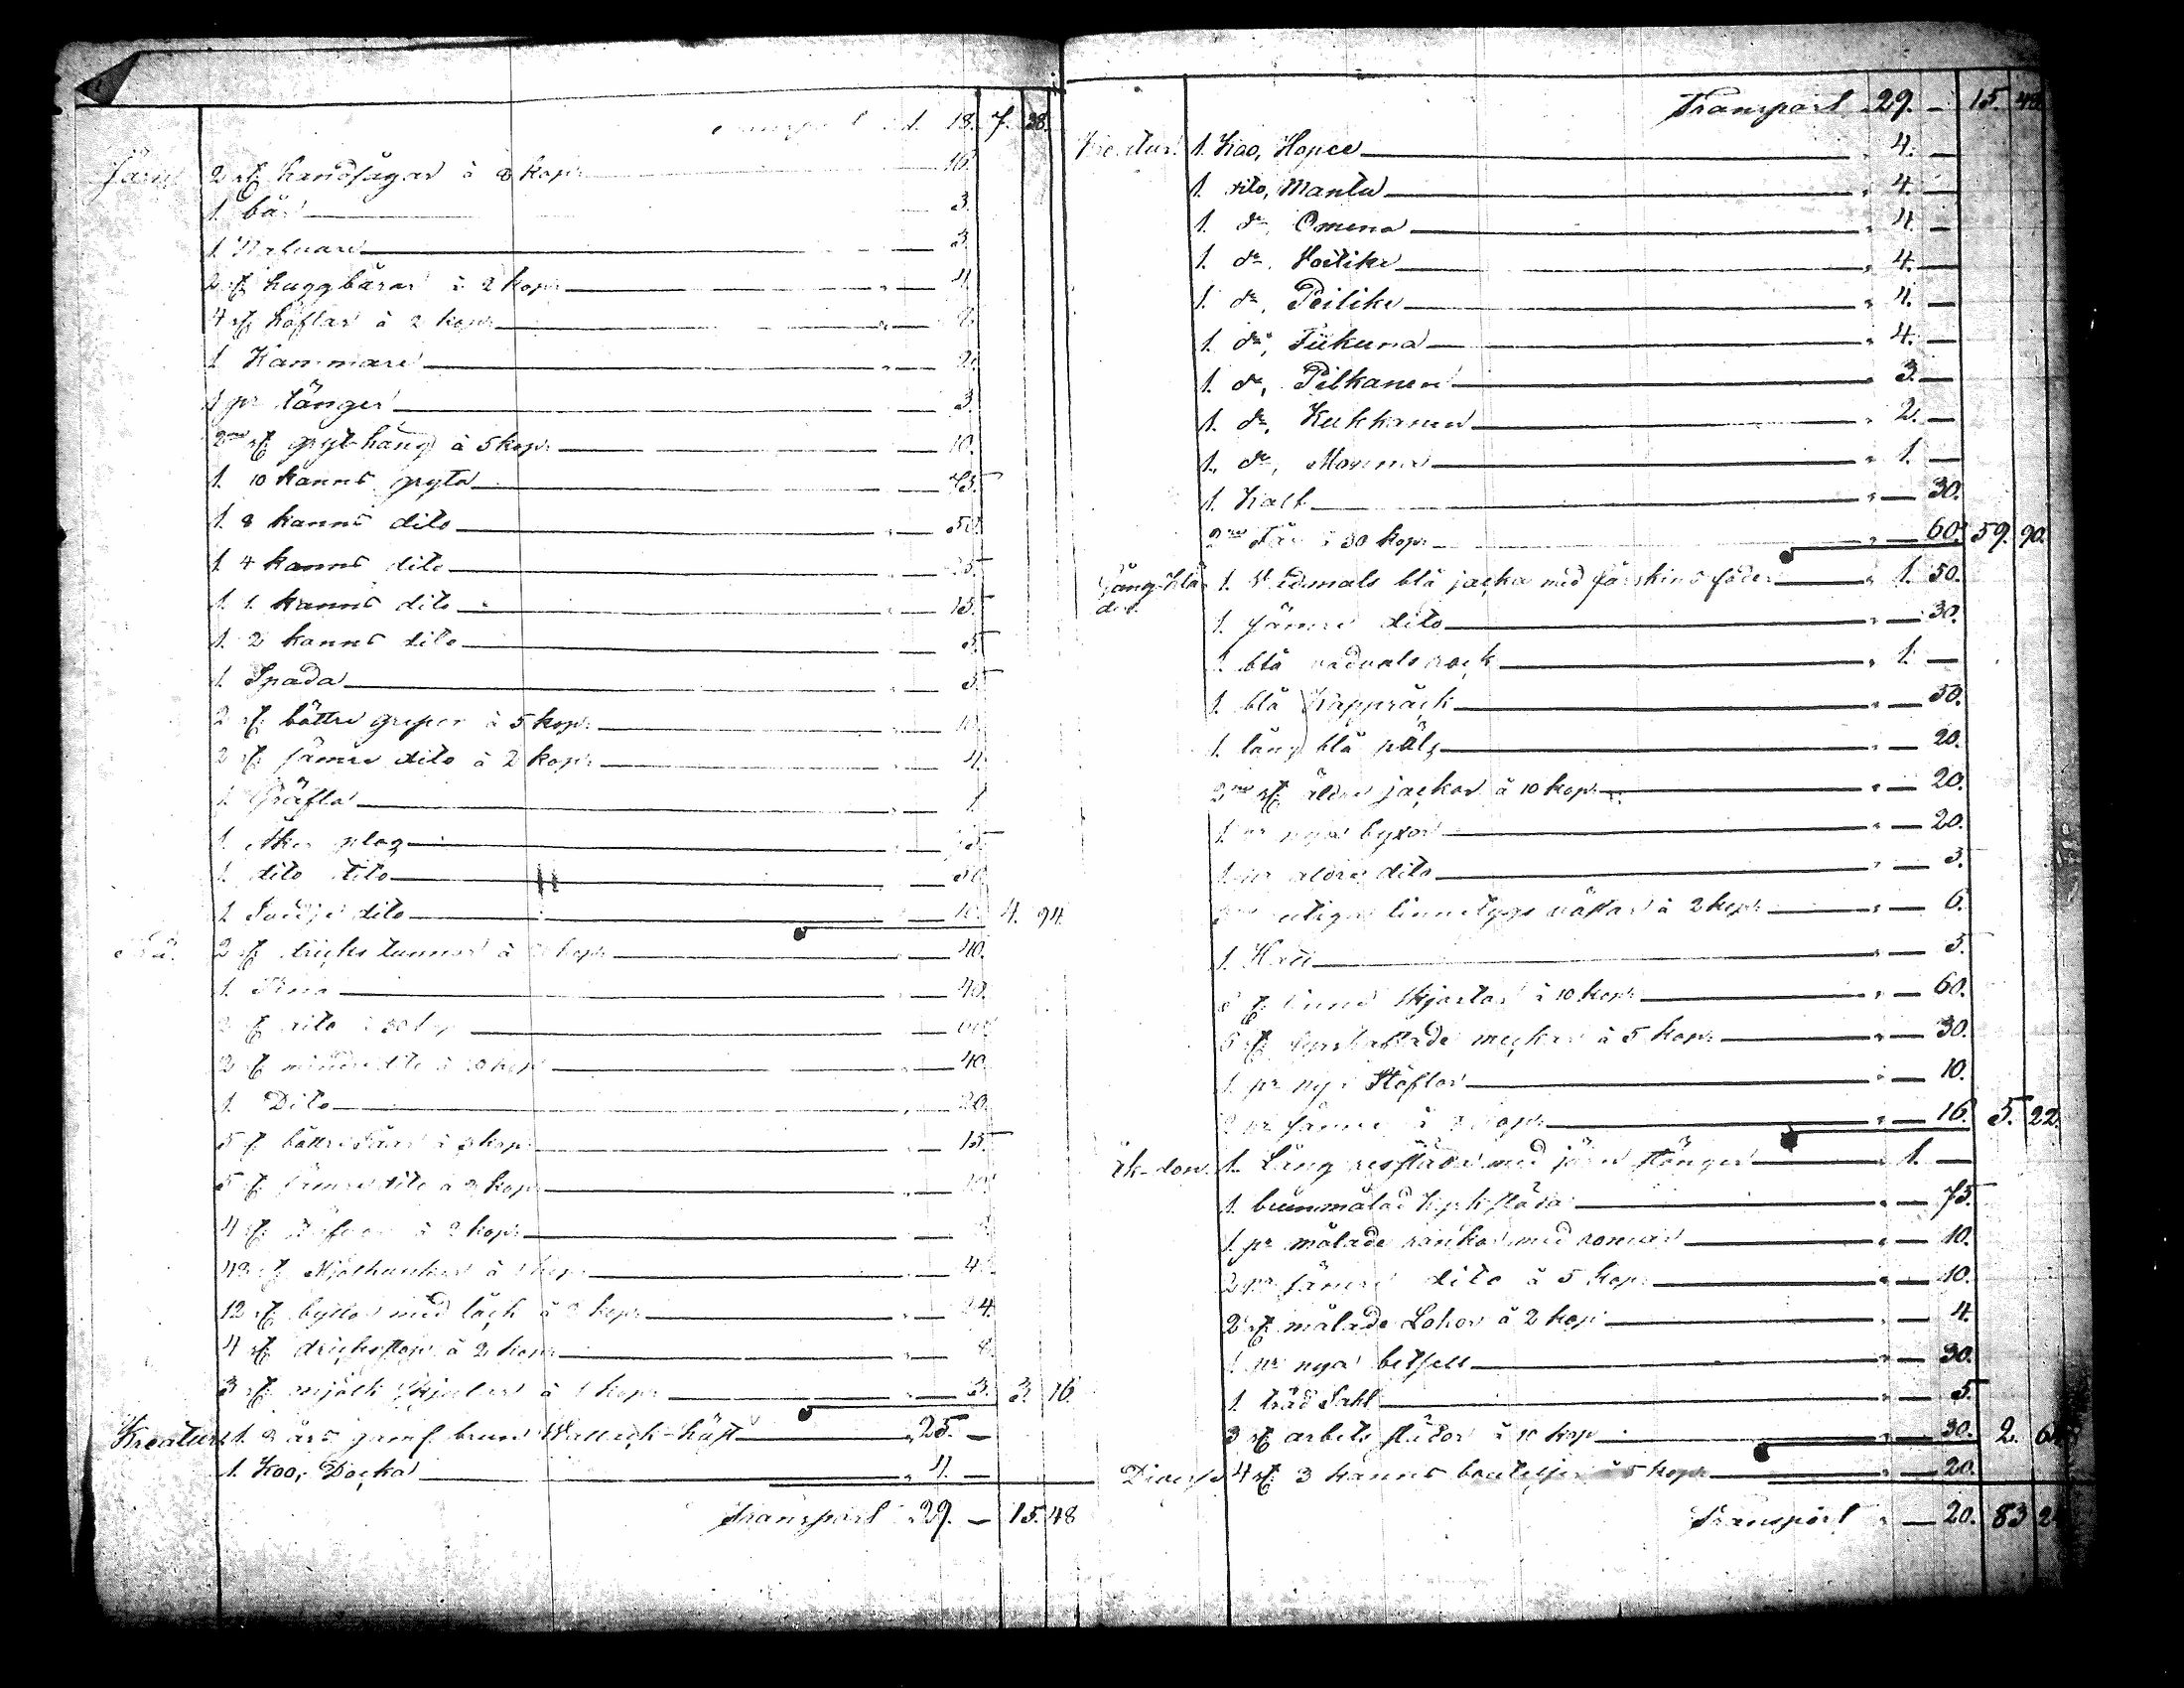 Transport 1. 18. 7. 38.
Järn 2 st handsågar à 8 kop: 16.
1. bår 3.
1 Nafvare 3.
2 st huggbårar à 2 kop: 4.
4 st höflar à 2 kop: 8.
1 Hammare 2.
1 pr tänger 3.
2ne st gryt-häng à 5 kop: 10.
1. 10 kanns gryta 75.
1. 8 kanns dito 50.
1. 4 kanns dito 25.
1. 1. kanns dito 15.
1. 2 kanns dito 5.
1. Spada 5.
2 st bättre greper à 5 kop: 10.
2 st sämre dito à 2 kop: 4.
1. Gräfta 1.
1. Åker plog 75.
1. dito dito 50.
1 dito 10. 4. 94.
Trä. 2 st dricks tunnor à kop: 40.
1. Tina 40.
2 st dito à 30 kop: 60.
2 st mindre dito à 20 kop: 40.
1. Dito 20.
5 st bättre Såar à 3 kop: 15.
5 st sämre dito à 2 kop: 10.
4 st à 2 kop: 8.
48 st Mjölkbunkar à 1 kop: 48.
12 st byttor med låck à 2 kop: 24.
4 st dricksstop à 2 kop: 8.
3 st mjölk skjulor à 1 kop: 3. 3. 16.
Kreatur 1. 8 års gam: brun Wallack-häst 25. —
1. Koo, Docka 4. —
Transport 29. — 15. 48
Transport 29. — 15. 48.
Kreatur. 1. Koo, Hopce 4. —
1. dito, Mantu 4. —
1. do, Omena 4. —
1. do, Hoitike 4. —
1. do, Peilike 4. —
1. do, Tiikuna 4. —
1. do, Pelkanen 3. —
1. do, Kukkanen 2. —
1. do, 1. —
1. Kalf 30.
2ne Får à 30 kop: 60. 59. 90.
Gång-Kläder. 1. Vadmals blå jacka med fårskins foder 1. 50.
1. sämre dito 30.
1. blå vadmals rock 1. —
1. blå Kappråck 50.
1. lång blå päls 20.
2ne st äldre jackor à 10 kop: 20.
1. pr nya byxor 20.
1. pr äldre dito 3.
linnetygs västar à 2 kop: 6.
1. Hatt 5.
6 st linne skjortor à 10 kop: 60.
6 st meckar à 5 kop: 30.
1. pr nya Stöflor 10.
2 pr sämre à 8 kop: 16. 5. 22.
Åk-don. 1. Lång ressläda med järn stänger 1. —
1. brunmålad Kyrksläda 75.
1. pr målade rankor med 10.
2 pr sämre dito à 5 kop: 10.
2 st målade Lokor à 2 kop: 4.
1. pr nya betsell 30.
1. träd Sahl 5.
3 st arbets slädor à 10 kop: 30. 2. 64.
Diverse 4 st 3 kanns bouteljer à 5 kop: 20.
Transport — 20. 83 24